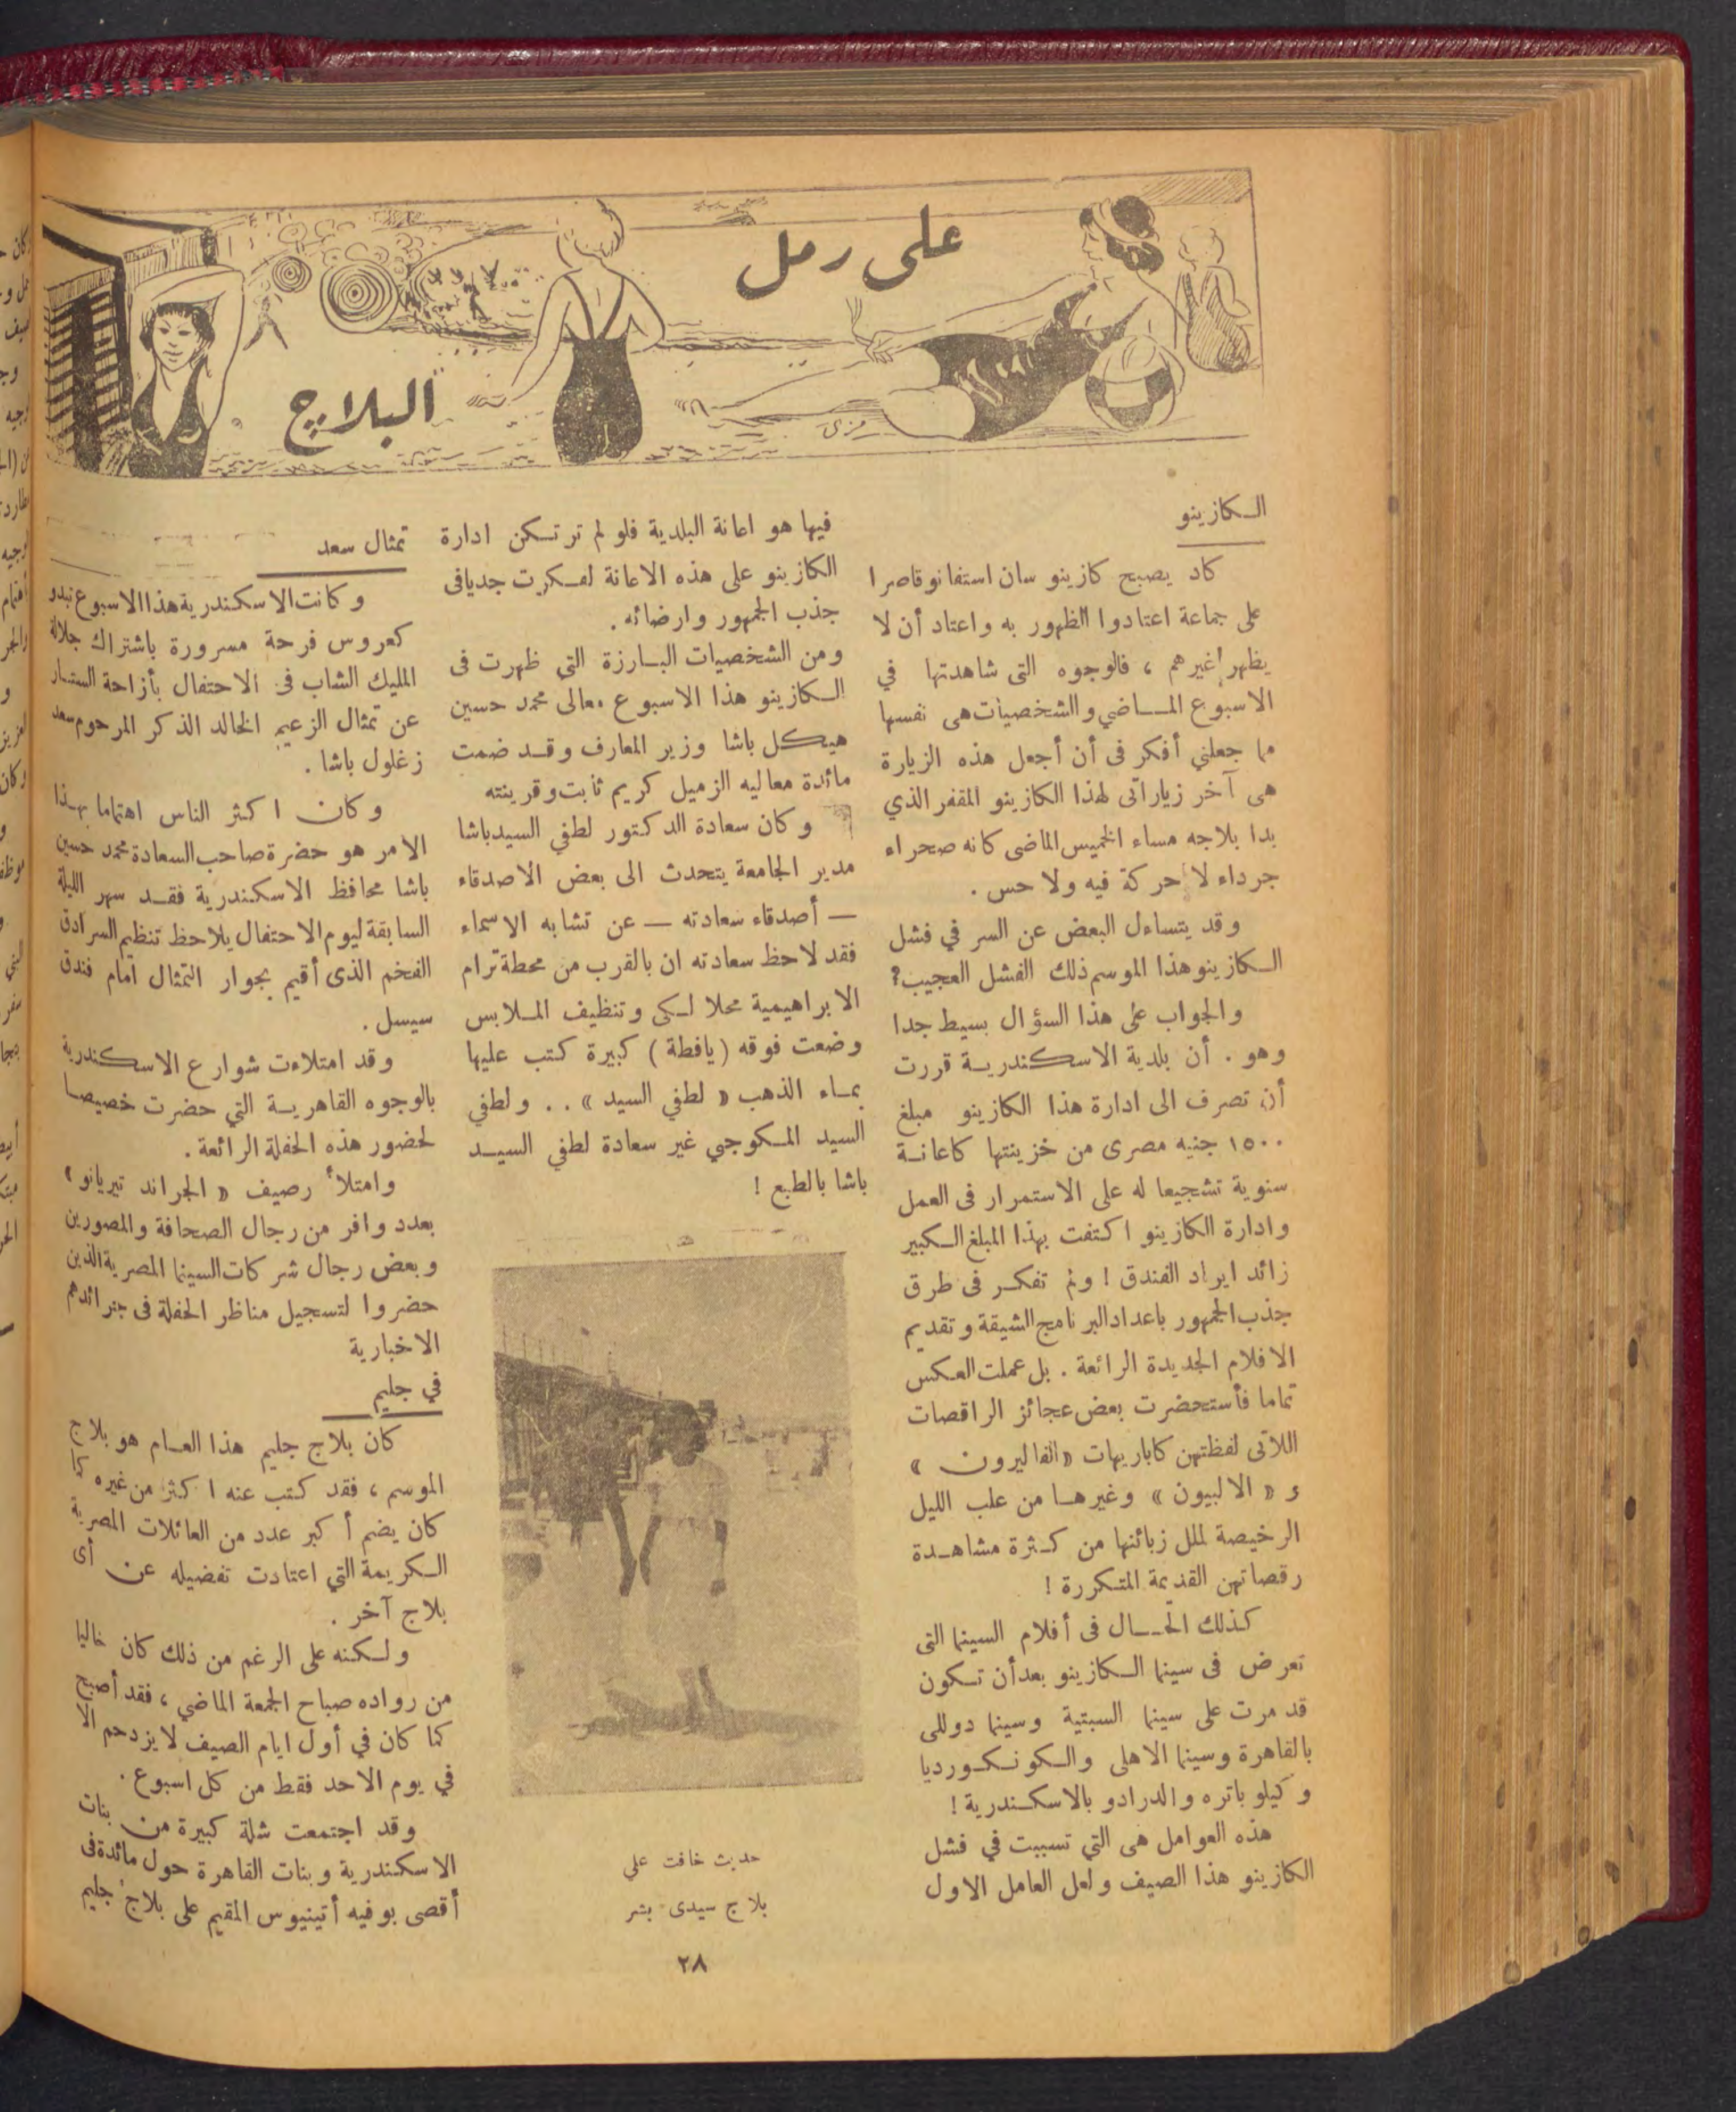 على رمل
البلاج
رمزى
الكازينو
كاد يصبح كازينو سان استفانو قاصرا
على جماعة اعتادوا الظهور به واعتاد أن لا
يظهر غيرهم ، فالوجوه التى شاهدتها في
الاسبوع الماضي والشخصيات هى نفسها
مما جعلني أفكر فى أن أجعل هذه الزيارة
هى آخر زياراتى لهذا الكازينو المقفر الذي
بدا بلاجه مساء الخميس الماضى كانه صحراء
جرداء لا حركة فيه ولا حس .
وقد يتساءل البعض عن السر في فشل
الكازينو هذا الموسم ذلك الفشل العجيب؟
والجواب على هذا السؤال بسيط جدا
وهو . أن بلدية الاسكندرية قررت
أن تصرف الى ادارة هذا الكازينو مبلغ
١٥٠٠ جنيه مصرى من خزينتها كاعانة
سنوية تشجيعا له على الاستمرار فى العمل
وادارة الكازينو اكتفت بهذا المبلغ الكبير
زائد ايراد الفندق ! ولم تفكر فى طرق
جذب الجمهور باعداد البرنامج الشيقة وتقديم
الافلام الجديدة الرائعة . بل عملت العكس
تماما فأستحضرت بعض عجائز الراقصات
اللاتى لفظتهن كاباريهات «الفاليرون »
و « الالبيون » وغيرها من علب الليل
الرخيصة لملل زبائنها من كثرة مشاهدة
رقصاتهن القديمة المتكررة !
كذلك الحال فى أفلام السينما التى
تعرض فى سينما الكازينو بعد أن تكون
قد مرت على سينما السبتية وسينما دوللى
بالقاهرة وسينما الاهلى والكونكورديا
وكيلوباتره والدرادو بالاسكندرية !
هذه العوامل هى التي تسببت في فشل
الكازينو هذا الصيف ولعل العامل الاول
فيها هو اعانة البلدية فلو لم ترتكن ادارة
الكازينو على هذه الاعانة لفكرت جديافى
جذب الجمهور وارضائه .
ومن الشخصيات البارزة التي ظهرت فى
الكازينو هذا الاسبوع معالى محمد حسين
هيكل باشا وزير المعارف وقد ضمت
مائدة معاليه الزميل كريم ثابت وقرينته
وكان سعادة الدكتور لطفي السيد باشا
مدير الجامعة يتحدث الى بعض الاصدقاء
— أصدقاء سعادته — عن تشابه الاسماء
فقد لاحظ سعادته ان بالقرب من محطة ترام
الابراهيمية محلا لكى وتنظيف الملابس
وضعت فوقه ( يافطة ) كبيرة كتب عليها
بماء الذهب « لطفي السيد » . . ولطفي
السيد المكوجي غير سعادة لطفي السيد
باشا بالطبع !
حديث خافت على
بلاج سيدى بشر
تمثال سعد
وكانت الاسكندرية هذا الاسبوع تبدو
كعروس فرحة مسرورة باشتراك جلالة
المليك الشاب فى الاحتفال بأزاحة الستار
عن تمثال الزعيم الخالد الذكر المرحوم سعد
زغلول باشا .
وكان اكثر الناس اهتماما بهذا
الامر هو حضرة صاحب السعادة محمد حسين
باشا محافظ الاسكندرية فقد سهر الليلة
السابقة ليوم الاحتفال يلاحظ تنظيم السرادق
الفخم الذى أقيم بجوار التمثال أمام فندق
سيسل .
وقد امتلاءت شوارع الاسكندرية
بالوجوه القاهرية التي حضرت خصيصا
لحضور هذه الحفلة الرائعة .
وامتلأ رصيف « الجراند تيريانو »
بعدد وافر من رجال الصحافة والمصورين
وبعض رجال شركات السينما المصرية الذين
حضروا لتسجيل مناظر الحفلة فى جرائدهم
الاخبارية
في جليم
كان بلاج جليم هذا العام هو بلاج
الموسم ، فقد كتب عنه اكثر من غيره كما
كان يضم أكبر عدد من العائلات المصرية
الكريمة التي اعتادت تفضيله عن أى
بلاج آخر .
ولكنه على الرغم من ذلك كان خاليا
من رواده صباح الجمعة الماضي ، فقد أصبح
كما كان في أول ايام الصيف لا يزدحم الا
في يوم الاحد فقط من كل اسبوع .
وقد اجتمعت شلة كبيرة من بنات
الاسكندرية وبنات القاهرة حول مائدة فى
أقصى بوفيه أتينيوس المقيم على بلاج جليم
٢٨